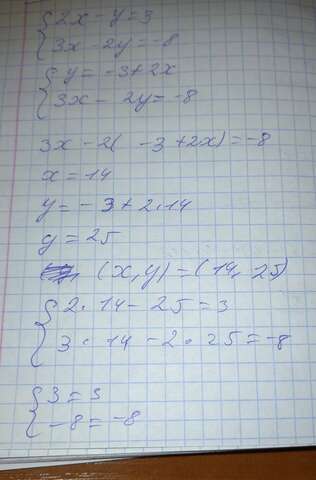 {2x - y = 3
{3x - 2y = -8
{y = -3 + 2x
{3x - 2y = -8
3x - 2( -3 + 2x) = -8
x = 14
y = -3 + 2·14
y = 25
(x, y) = (14, 25)
{2 · 14 - 25 = 3
{3 · 14 - 2 · 25 = -8
{3 = 3
{-8 = -8